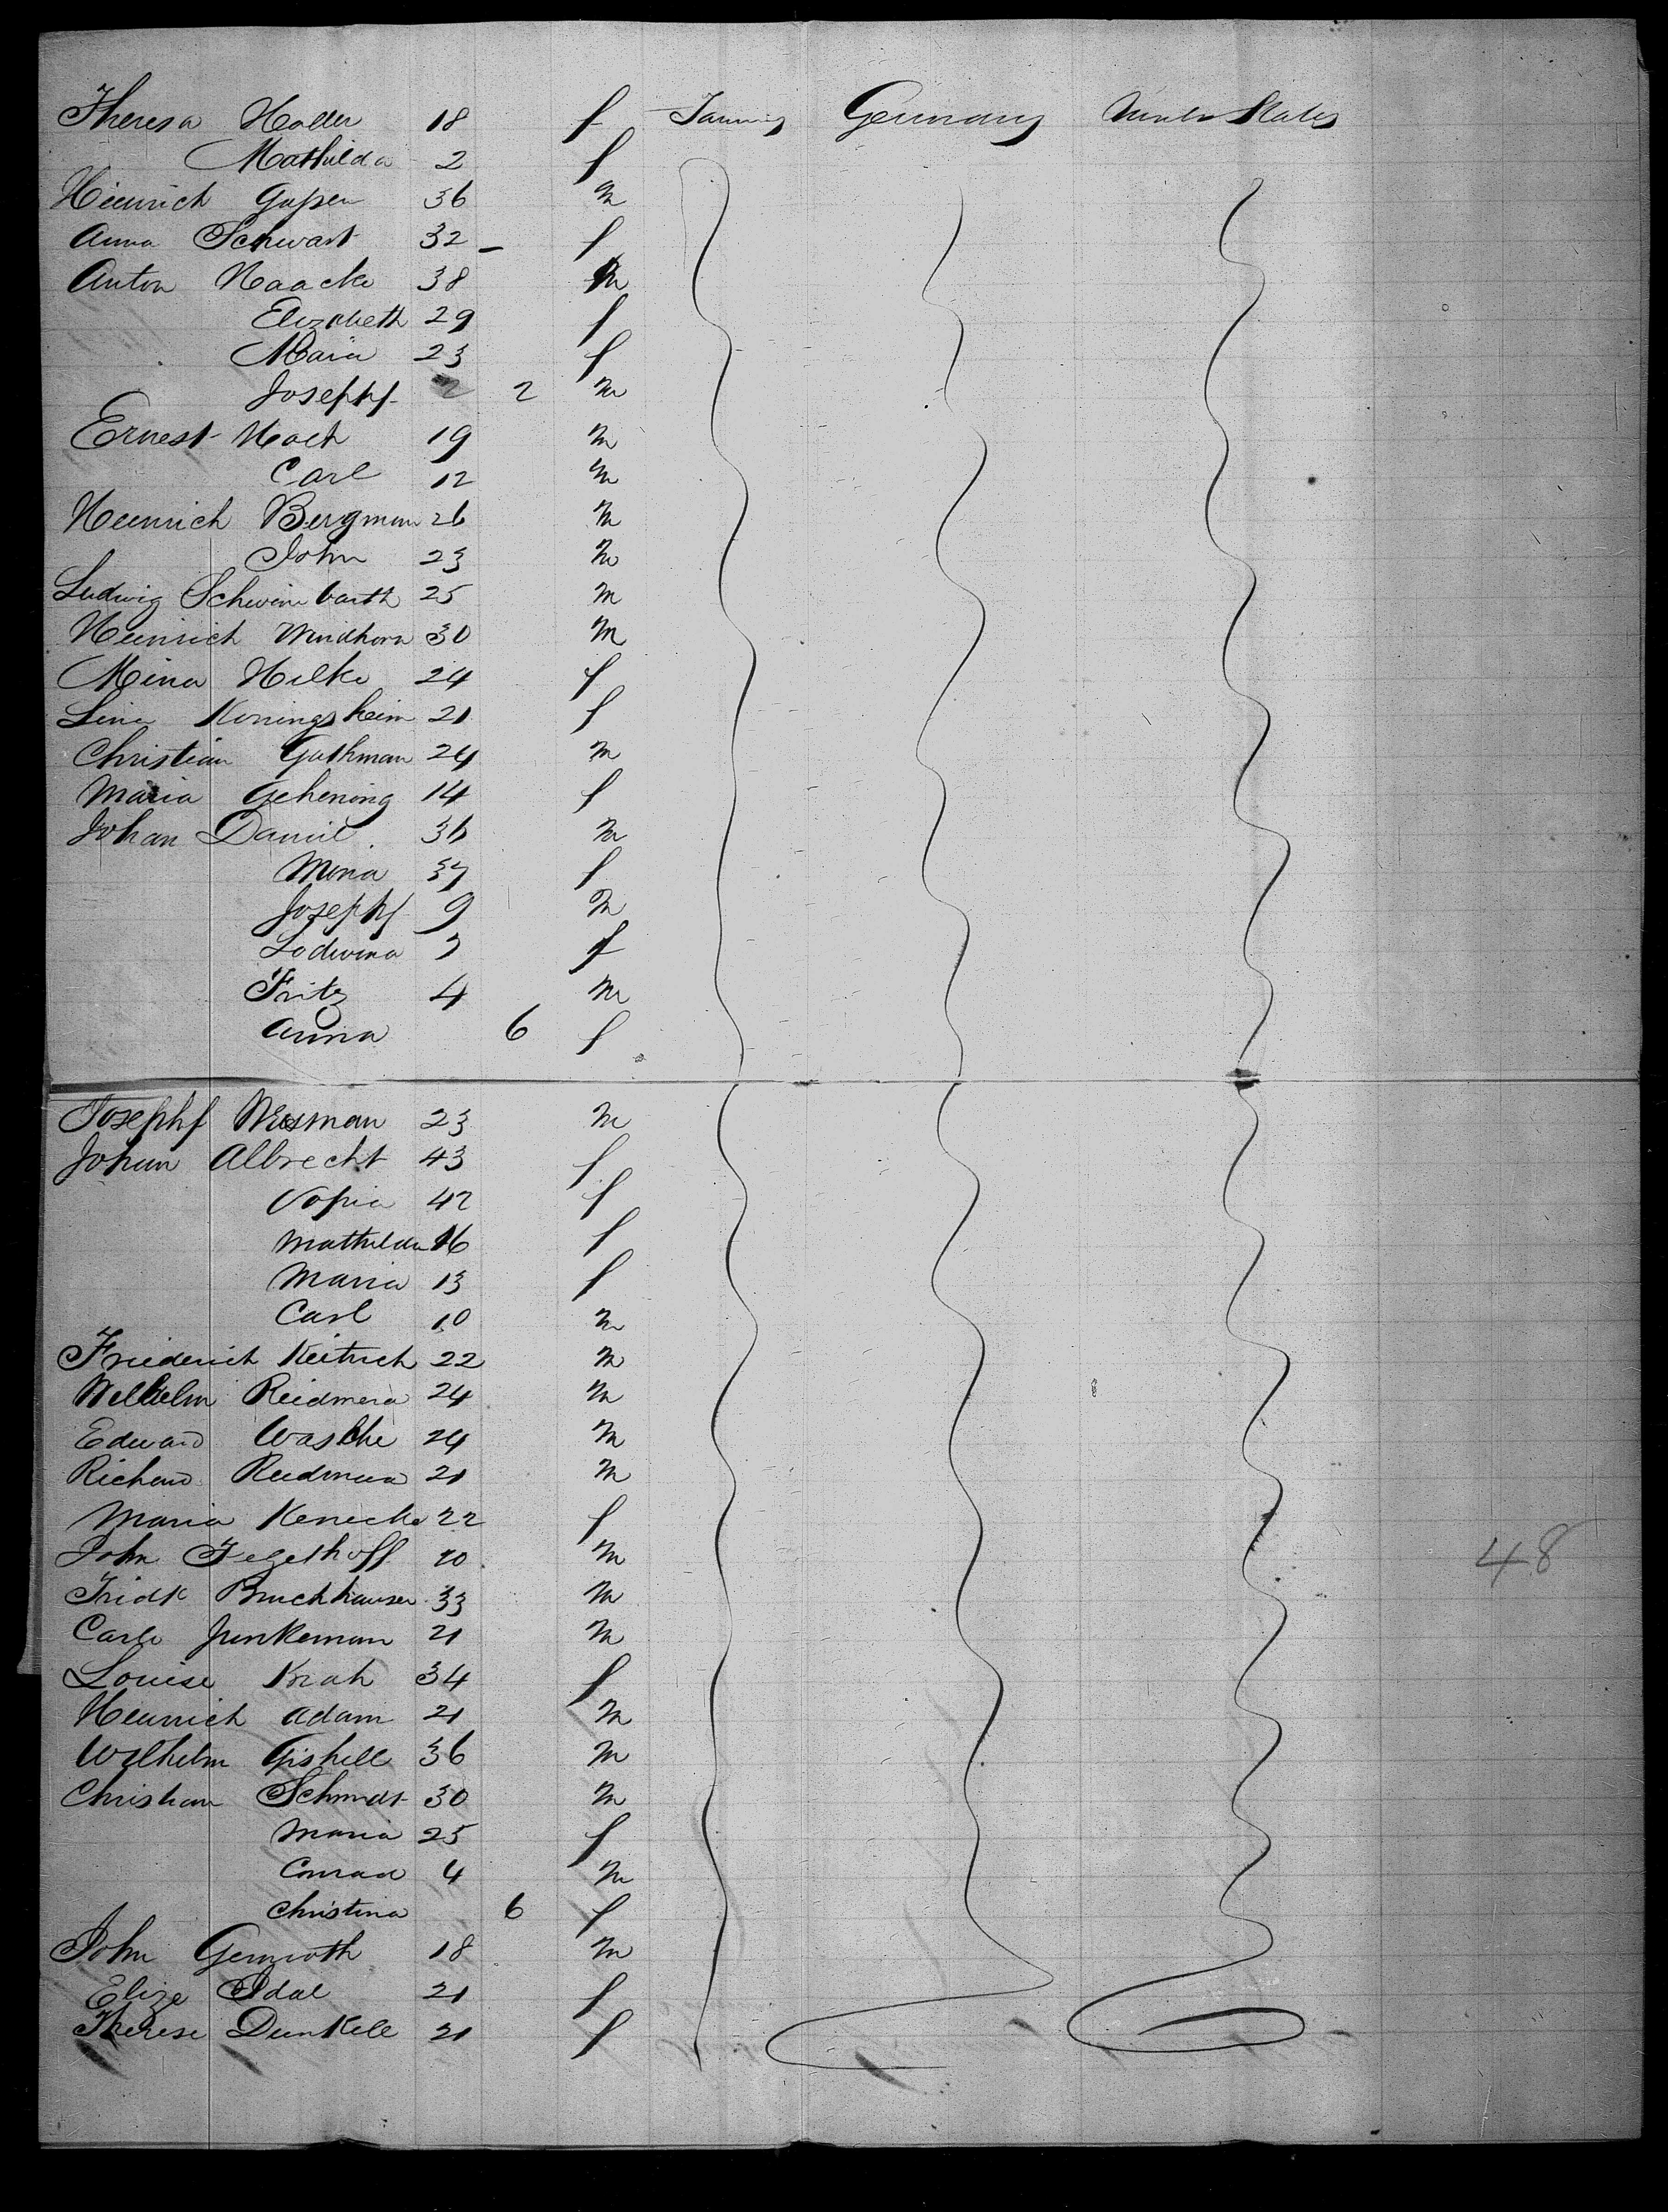 Theresa Holler 18 f Farming Germany United States
Mathilda 2 f
Heinrich 36 m
Anna Schwart 32 – f
Anton Haacke 38 m
Elizabeth 29 f
Maria 23 f
Joseph 2 m
Ernest Hoch 19 m
Carl 12 m
Heinrich Bergman 26 m
John 23 m
Ludwig 25 m
Heinrich Windhorn 30 m
Mina Hilke 24 f
Lina Koningsheim 21 f
Christian Guthman 24 m
Maria Gehening 14 f
Johan Daniel 36 m
Mina 37 f
Joseph 9 m
Lodwina 7 f
Fritz 4 m
Anna 6 f
Joseph Wesman 23 m
Johan Albrecht 43 f
Sopia 42 f
Mathilda 16 f
Maria 13 f
Carl 10 m
Friederich 22 m
Wilhelm 24 m
Edward Wasche 24 m
Richard 21 m
Maria Kenecke 22 f
John Tegethoff 20 m
Fridk Bruchhauser 33 m
Carl Junkeman 21 m
Louise Krah 34 f
Heinrich Adam 21 m
Wilhelm Gishell 36 m
Christian Schmidt 30 m
Maria 25 f
Conrad 4 m
Christina 6 f
John 18 m
Elize Idal 21 f
Therese Dunkell 21 f
48